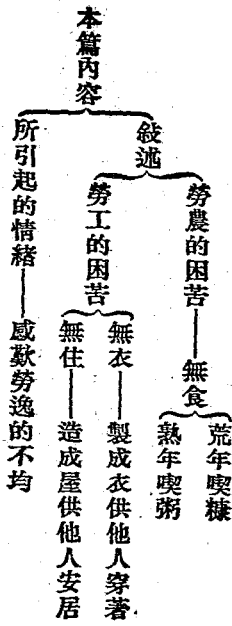 本篇內容
敍述
勞農的困苦
無食
荒年喫糠
熟年喫粥
勞工的困苦
無衣
製成衣供他人穿著
無住
造成屋供他人安居
所引起的情緒
感歎勞逸的不均